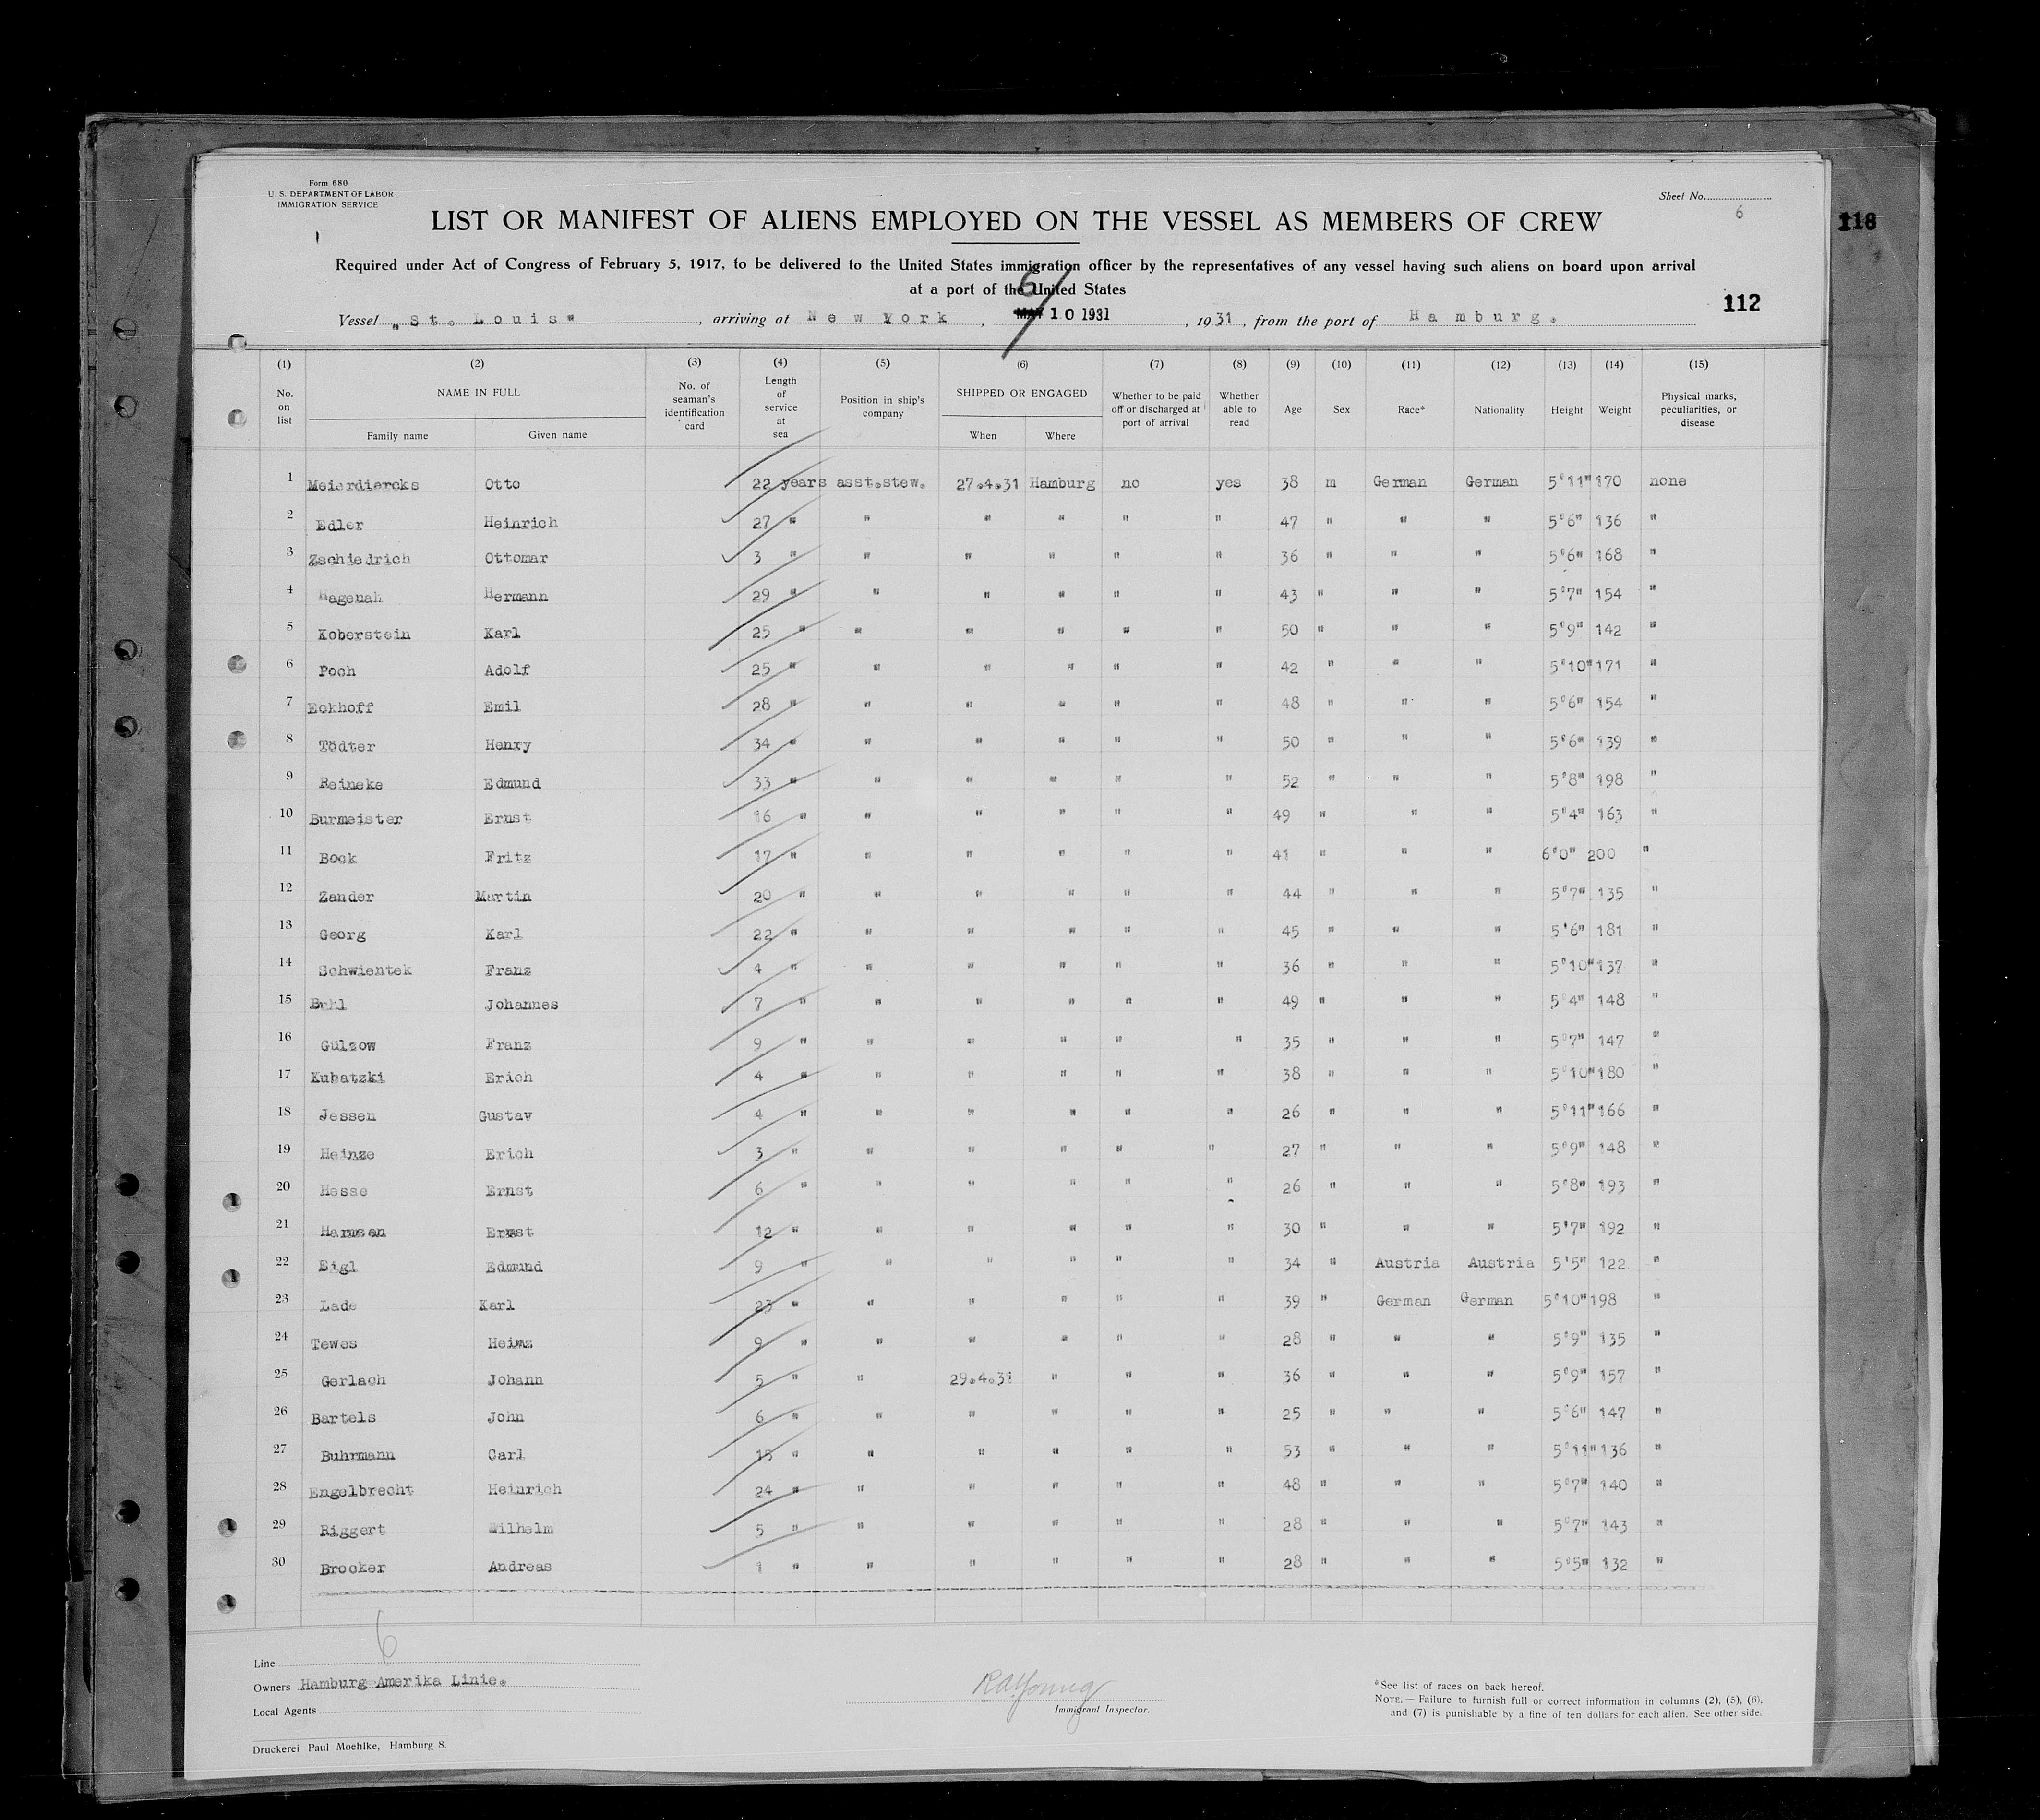 Form 680
U. S. DEPARTMENT OF LABOR
IMMIGRATION SERVICE
Sheet No.
6
LIST OR MANIFEST OF ALIENS EMPLOYED ON THE VESSEL AS MEMBERS OF CREW
118
Required under Act of Congress of February 5, 1917, to be delivered to the United States immigration officer by the representatives of any vessel having such aliens on board upon arrival
at a port of the United States
112
Vessel "St. Louis", arriving at New York, MAY 10 1931, 1931, from the port of Hamburg.
(1) (2) (3) (4) (5) (6) (7) (8) (9) (10) (11) (12) (13) (14) (15)
No. on list NAME IN FULL No. of seaman's identification card Length of service at sea Position in ship's company SHIPPED OR ENGAGED Whether to be paid off or discharged at port of arrival Whether able to read Age Sex Race* Nationality Height Weight Physical marks, peculiarities, or disease
Family name Given name When Where
1 Meierdiercks Otto 22 years asst.stew. 27.4.31 Hamburg no yes 38 m German German 5'11" 170 none
2 Edler Heinrich 27 " " " " " " 47 " " " 5'6" 136 "
3 Zschiedrich Ottomar 3 " " " " " " 36 " " " 5'6" 168 "
4 Hagenah Hermann 29 " " " " " " 43 " " " 5'7" 154 "
5 Koberstein Karl 25 " " " " " " 50 " " " 5'9" 142 "
6 Poch Adolf 25 " " " " " " 42 " " " 5'10" 171 "
7 Eckhoff Emil 28 " " " " " " 48 " " " 5'6" 154 "
8 Tödter Henry 34 " " " " " " 50 " " " 5'6" 139 "
9 Reineke Edmund 33 " " " " " " 52 " " " 5'8" 198 "
10 Burmeister Ernst 16 " " " " " " 49 " " " 5'4" 163 "
11 Bock Fritz 17 " " " " " " 41 " " " 6'0" 200 "
12 Zander Martin 20 " " " " " " 44 " " " 5'7" 135 "
13 Georg Karl 22 " " " " " " 45 " " " 5'6" 181 "
14 Schwientek Franz 4 " " " " " " 36 " " " 5'10" 137 "
15 Johannes 7 " " " " " " 49 " " " 5'4" 148 "
16 Gülzow Franz 9 " " " " " " 35 " " " 5'7" 147 "
17 Kubatzki Erich 4 " " " " " " 38 " " " 5'10" 180 "
18 Jessen Gustav 4 " " " " " " 26 " " " 5'11" 166 "
19 Heinze Erich 3 " " " " " " 27 " " " 5'9" 148 "
20 Hesse Ernst 6 " " " " " " 26 " " " 5'8" 193 "
21 Harmsen Ernst 12 " " " " " " 30 " " " 5'7" 192 "
22 Eigl Edmund 9 " " " " " " 34 " Austria Austria 5'5" 122 "
23 Lade Karl 23 " " " " " " 39 " German German 5'10" 198 "
24 Tewes Heinz 9 " " " " " " 28 " " " 5'9" 135 "
25 Gerlach Johann 5 " " 29.4.31 " " " 36 " " " 5'9" 157 "
26 Bartels John 6 " " " " " " 25 " " " 5'6" 147 "
27 Buhrmann Carl 15 " " " " " " 53 " " " 5'11" 136 "
28 Engelbrecht Heinrich 24 " " " " " " 48 " " " 5'7" 140 "
29 Riggert Wilhelm 5 " " " " " " 28 " " " 5'7" 143 "
30 Brocker Andreas 1 " " " " " " 28 " " " 5'5" 132 "
6
Line
Owners Hamburg Amerika Linie.
Local Agents
RA Young
Immigrant Inspector.
*See list of races on back hereof.
NOTE. — Failure to furnish full or correct information in columns (2), (5), (6),
and (7) is punishable by a fine of ten dollars for each alien. See other side.
Druckerei Paul Moehlke, Hamburg 8.